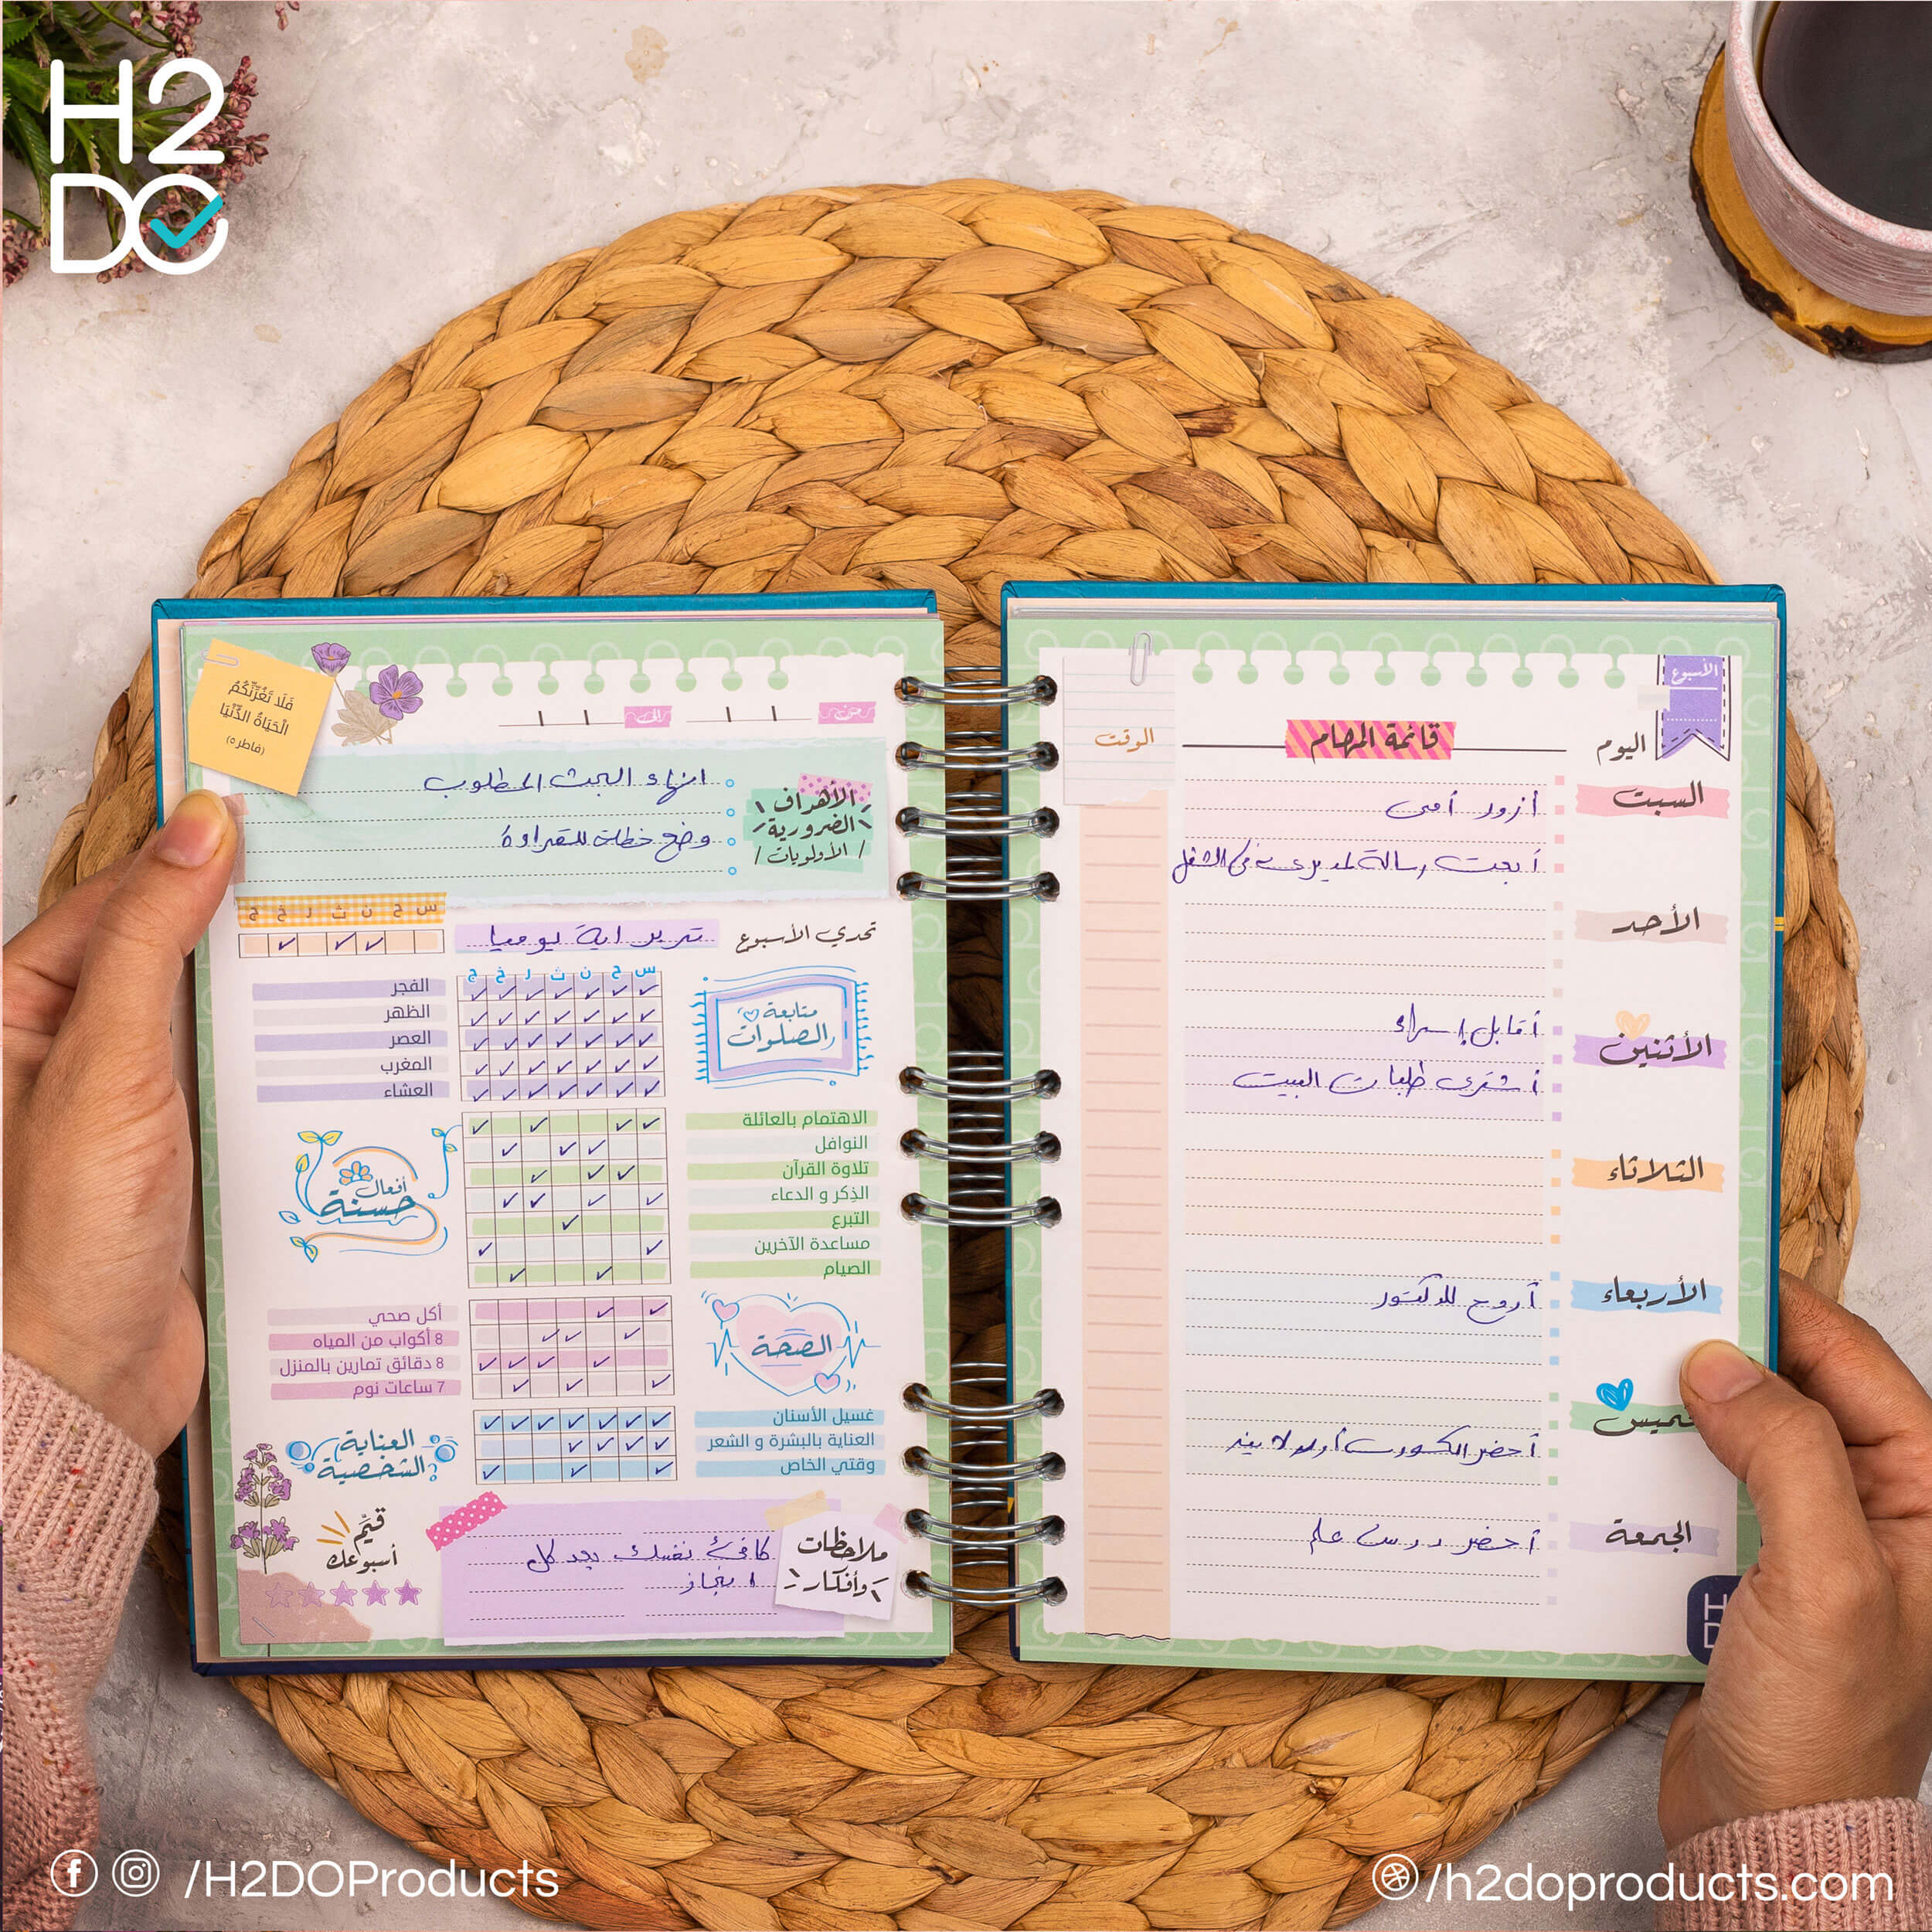 H2
DO
الأسبوع
اليوم
قائمة المهام
الوقت
السبت
أزور أمى
أبعت رسالة لمديرى فى الشغل
الأحد
الأثنين
أقابل إسراء
أشترى طلبات البيت
الثلاثاء
الأربعاء
أروح للدكتور
أحضر الكورس أونلاين
الجمعة
أحضر درس علم
فَلَا تَغُرَّنَّكُمُ
الْحَيَاةُ الدُّنْيَا
(فاطر ٥)
من
إلى
الأهداف
الضرورية
/ الأولويات /
انهاء البحث المطلوب
وضع خطة للقراءة
تحدي الأسبوع
تدبر اية يوميا
س ح ن ث ر خ ج
متابعة
الصلوات
س ح ن ث ر خ ج
الفجر
الظهر
العصر
المغرب
العشاء
أفعال
حسنة
الاهتمام بالعائلة
النوافل
تلاوة القرآن
الذِكر و الدعاء
التبرع
مساعدة الآخرين
الصيام
الصحة
أكل صحي
8 أكواب من المياه
8 دقائق تمارين بالمنزل
7 ساعات نوم
العناية
الشخصية
غسيل الأسنان
العناية بالبشرة و الشعر
وقتي الخاص
ملاحظات
وأفكار
كافئ نفسك بعد كل
انجاز
قيِّم
أسبوعك
/H2DOProducts
/h2doproducts.com